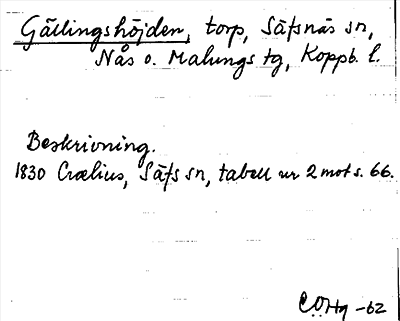 Gällingshöjden, torp, Säfsnäs sn,
Nås o. Malungs tg, Koppb. l.
Beskrivning.
1830 Crælius, Säfs sn, tabell nr 2 mot s. 66.
CÖHg -62